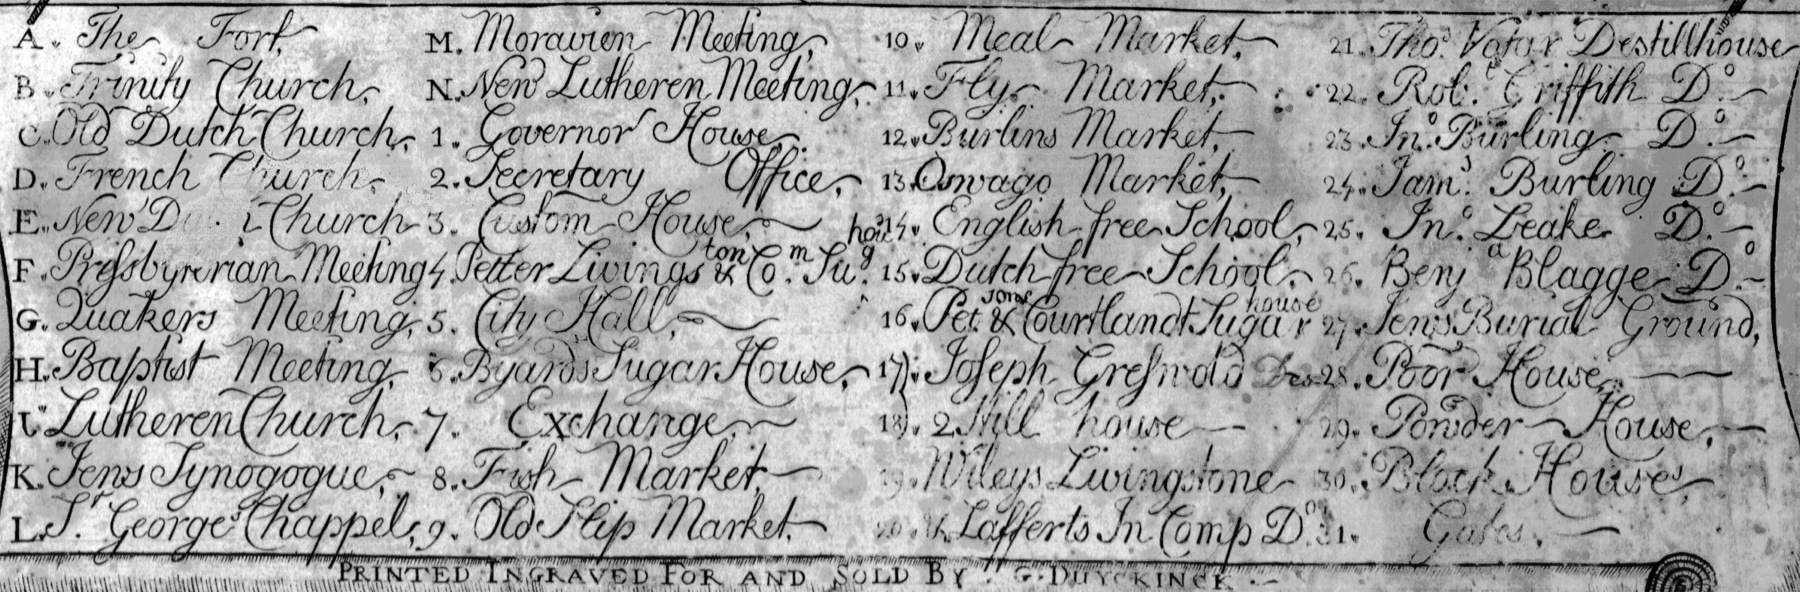 A. The Fort,
B. Trinity Church,
C. Old Dutch Church,
D. French Church,
E. New Church
F. Pressbyterian Meeting
G. Quakers Meeting,
H. Baptist Meeting,
I. Lutheren Church,
K. Jews Synogogue,
L. St George's Chappel,
M. Moravien Meeting,
N. New Lutheren Meeting,
1. Governor House,
2. Secretary Office,
3. Custom House,
4. Petter Livingston & Co.m Sug. hou
5. City Hall,
6. Byards Sugar House,
7. Exchange
8. Fish Market,
9. Old Slip Market.
10. Meal Market,
11. Fly Market,
12. Burlins Market,
13. Oswago Market,
14. English free School,
15. Dutch free School,
16. Pet. & Courtlandt Sugar house
17. Joseph Greswold
18. 2 Mill house
19. Wileys Livingstone
20. Lafferts In Comp Do.
21. Tho.s Vatar Destillhouse
22. Rob.t Griffith Do.
23. Jno. Burling Do.
24. Jam.s Burling Do.
25. Jno. Leake Do.
26. Benj.a Blagge Do.
27. Jews Burial Ground,
28. Poor House,
29. Powder House,
30. Block House,
31. Gates.
PRINTED INGRAVED FOR AND SOLD BY G. DUYCKINCK